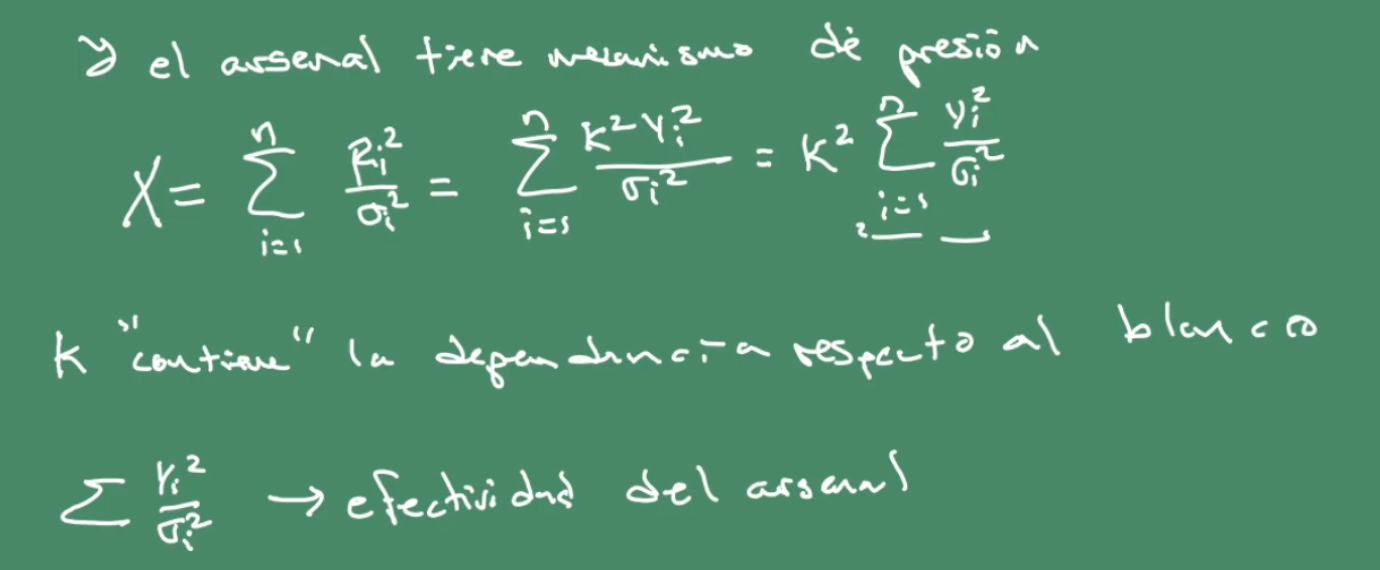 y el arsenal tiene mecanismo de presión
X = ∑_{i=1}^{n} R_i²/σ_i² = ∑_{i=1}^{n} K² Y_i²/σ_i² = K² ∑_{i=1}^{n} Y_i²/σ_i²
K "contiene" la dependencia respecto al blanco
∑ Y_i²/σ_i² → efectividad del arsenal